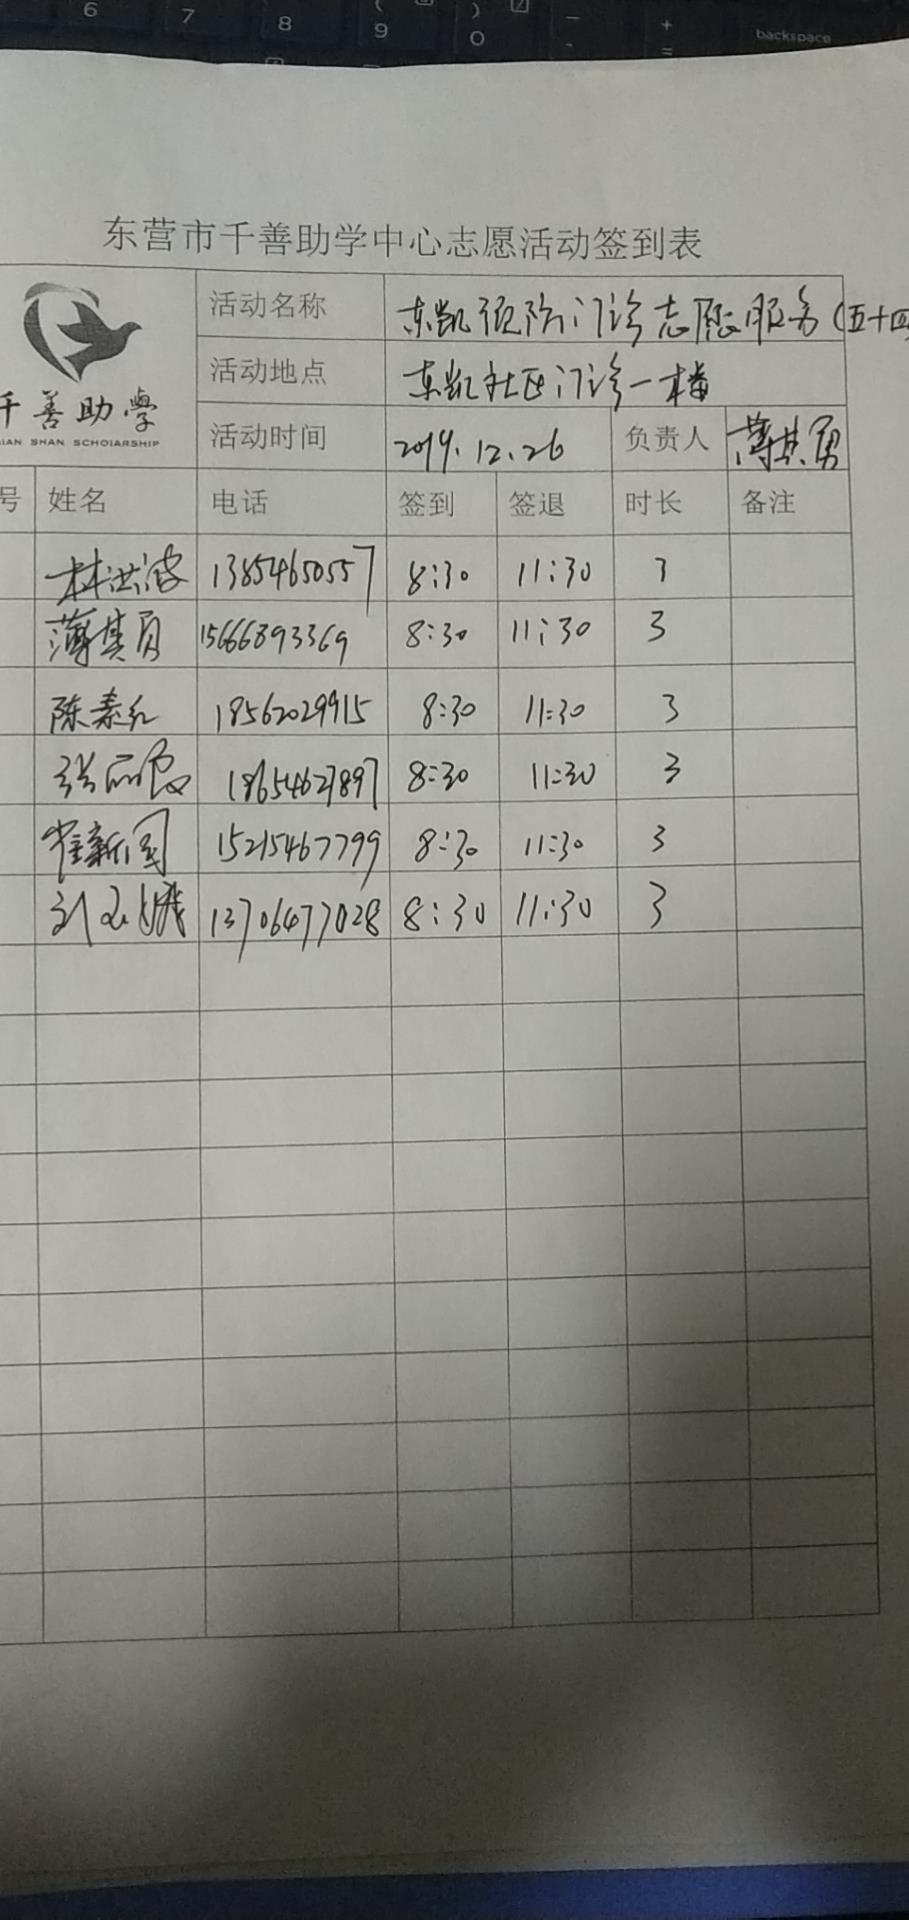 6 7 8 ( 9 ) 0 _ - + = backspace
东营市千善助学中心志愿活动签到表
活动名称 东凯预防门诊志愿服务(五十四
千善助學
IAN SHAN SCHOIARSHIP
活动地点 东凯社区门诊一楼
活动时间 2019.12.26 负责人 薄其勇
号 姓名 电话 签到 签退 时长 备注
林洪波 13854650557 8:30 11:30 3
薄其勇 15666893369 8:30 11:30 3
陈素红 18562029915 8:30 11:30 3
张 18654627897 8:30 11:30 3
崔新图 15215467799 8:30 11:30 3
刘玉娥 13706477028 8:30 11:30 3